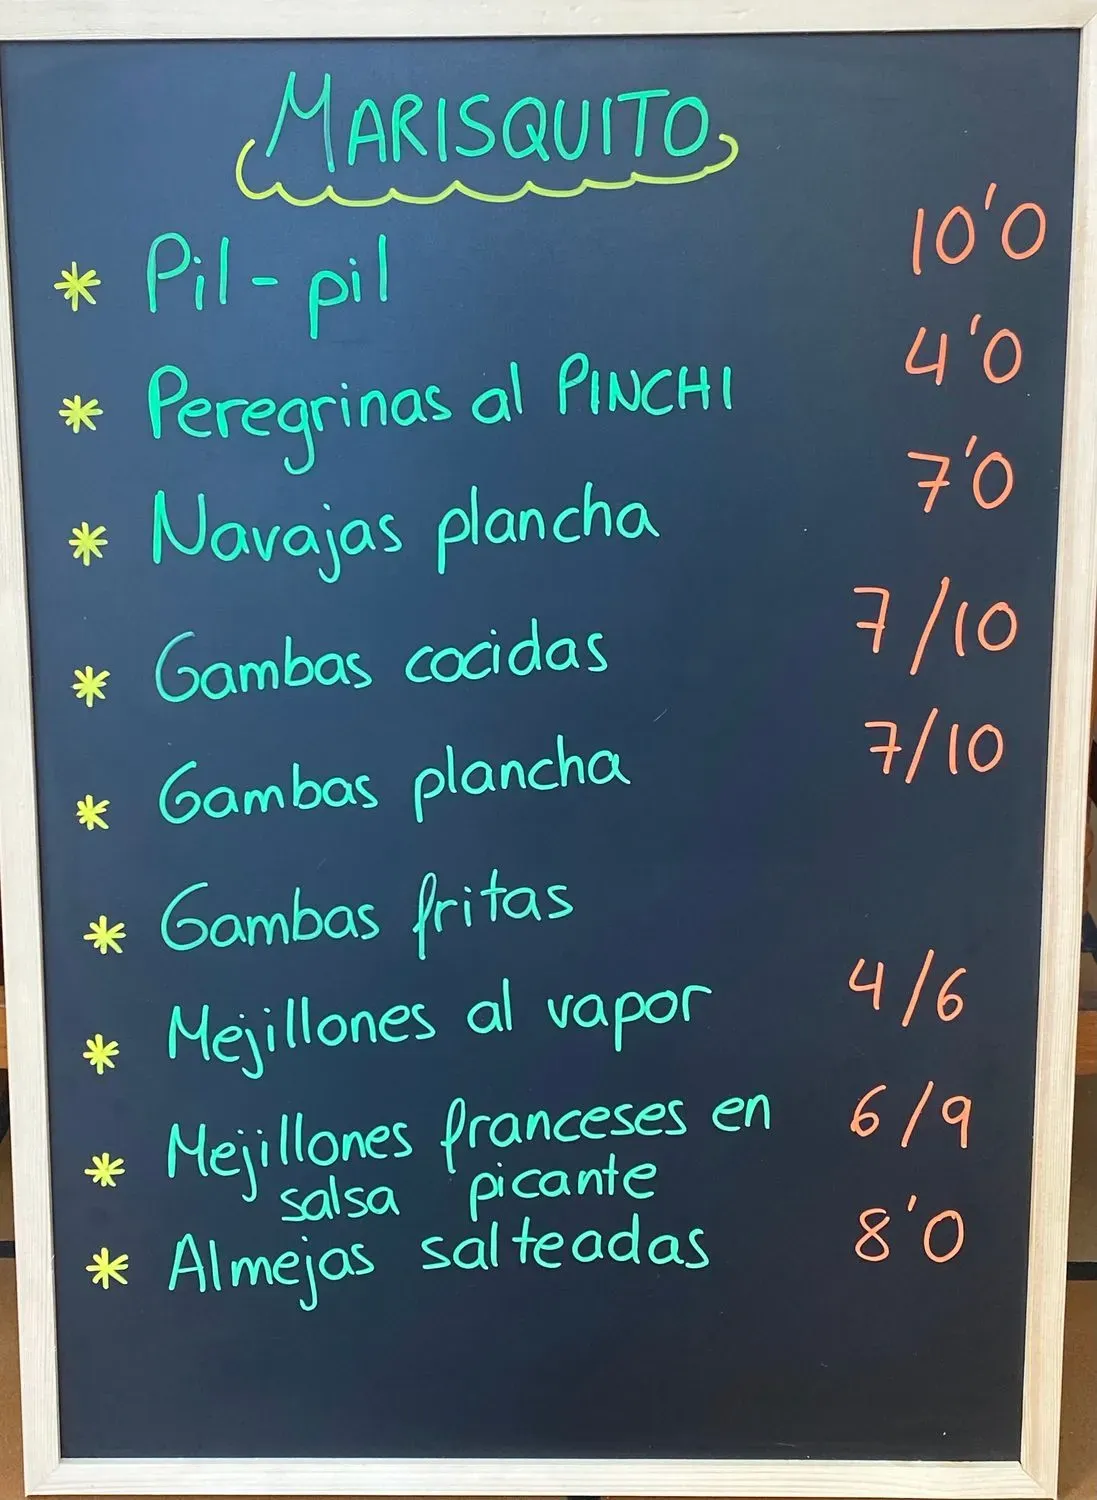 MARISQUITO
* Pil-pil 10'0
* Peregrinas al PINCHI 4'0
* Navajas plancha 7'0
* Gambas cocidas 7/10
* Gambas plancha 7/10
* Gambas fritas
* Mejillones al vapor 4/6
* Mejillones franceses en 6/9
salsa picante
* Almejas salteadas 8'0